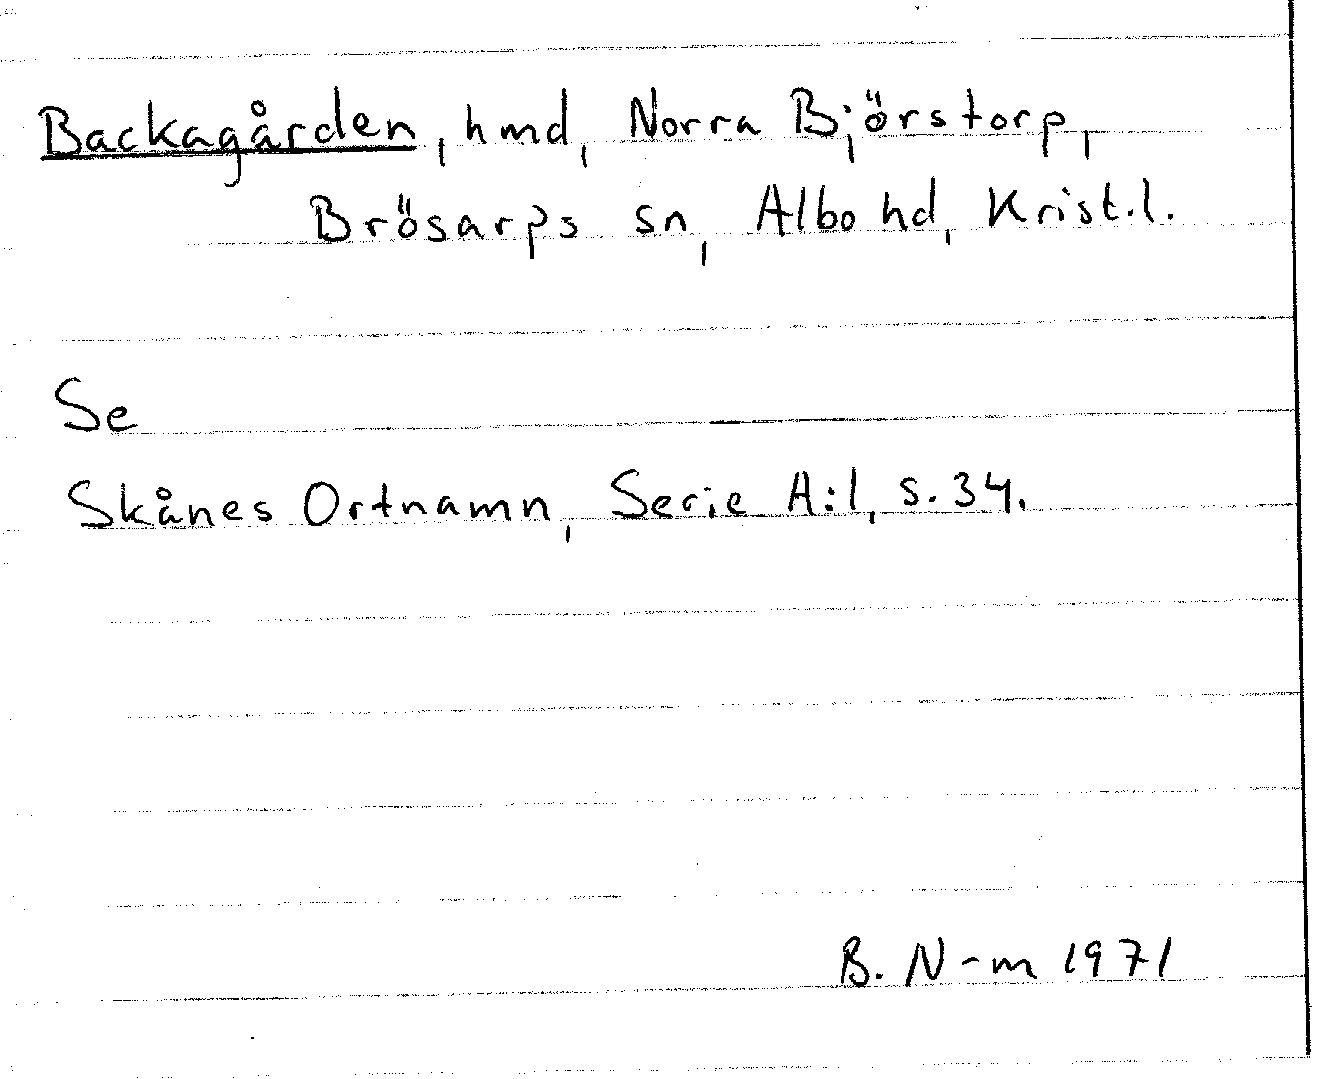 Backagården, hmd, Norra Björstorp,
Brösarps sn, Albo hd, Krist.l.
Se
Skånes Ortnamn, Serie A:1, s. 34.
B. N-m 1971